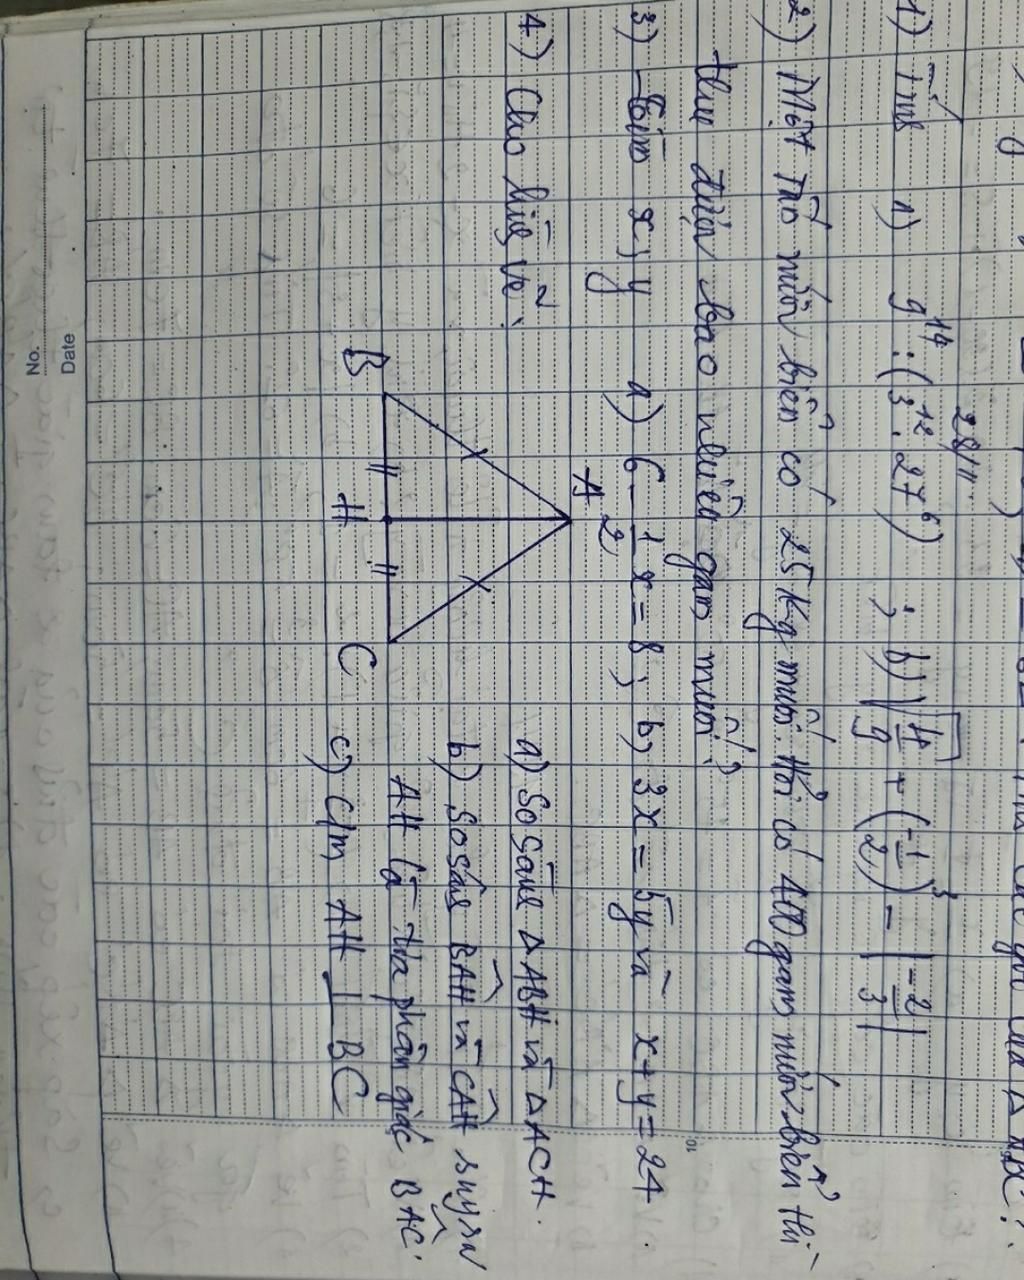 28/11.
1) Tính a) 9¹⁴ : (3¹² . 27⁶) ; b) √(4/9) + (-1/2)³ - |-2/3|
2) Một tấn nước biển có 25 Kg muối. Hỏi có 400 gam nước biển thì
thu được bao nhiêu gam muối?
3) Tìm x, y a) 6 - 1/2 x = 8; b) 3x = 5y và x + y = 24
4) Cho hình vẽ:
A
B H C
a) So sánh △ABH và △ACH.
b) So sánh BAH và CAH suy ra
AH là tia phân giác BAC.
c) C/m AH ⊥ BC
No.
Date